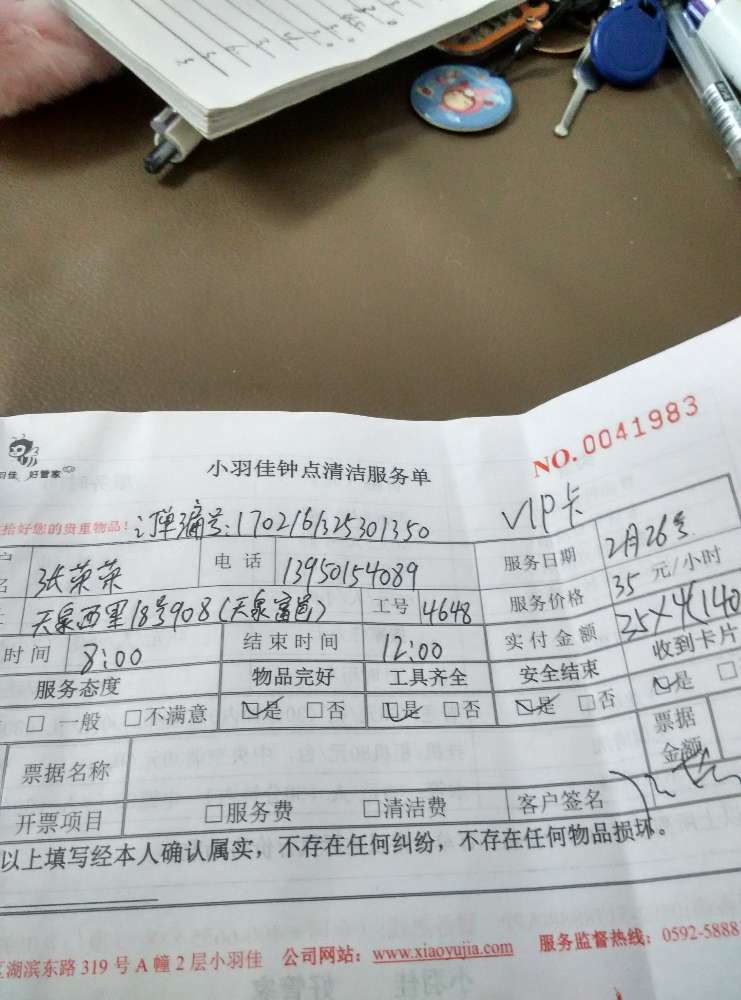 NO.0041983
好管家
小羽佳钟点清洁服务单
拾好您的贵重物品！ 订单编号:1702161325301350 VIP卡
张荣荣 电话 13950154089 服务日期 2月26号
天泉西里18号908(天泉富邑) 工号 4648 服务价格 35 元/小时
时间 8:00 结束时间 12:00 实付金额 35X4(140
服务态度 物品完好 工具齐全 安全结束 收到卡片
□ 一般 □不满意 是 □否 是 □否 是 □否 是 □
票据名称 票据金额
开票项目 □服务费 □清洁费 客户签名
以上填写经本人确认属实，不存在任何纠纷，不存在任何物品损坏。
湖滨东路 319 号 A 幢 2 层小羽佳 公司网站：www.xiaoyujia.com 服务监督热线：0592-5888